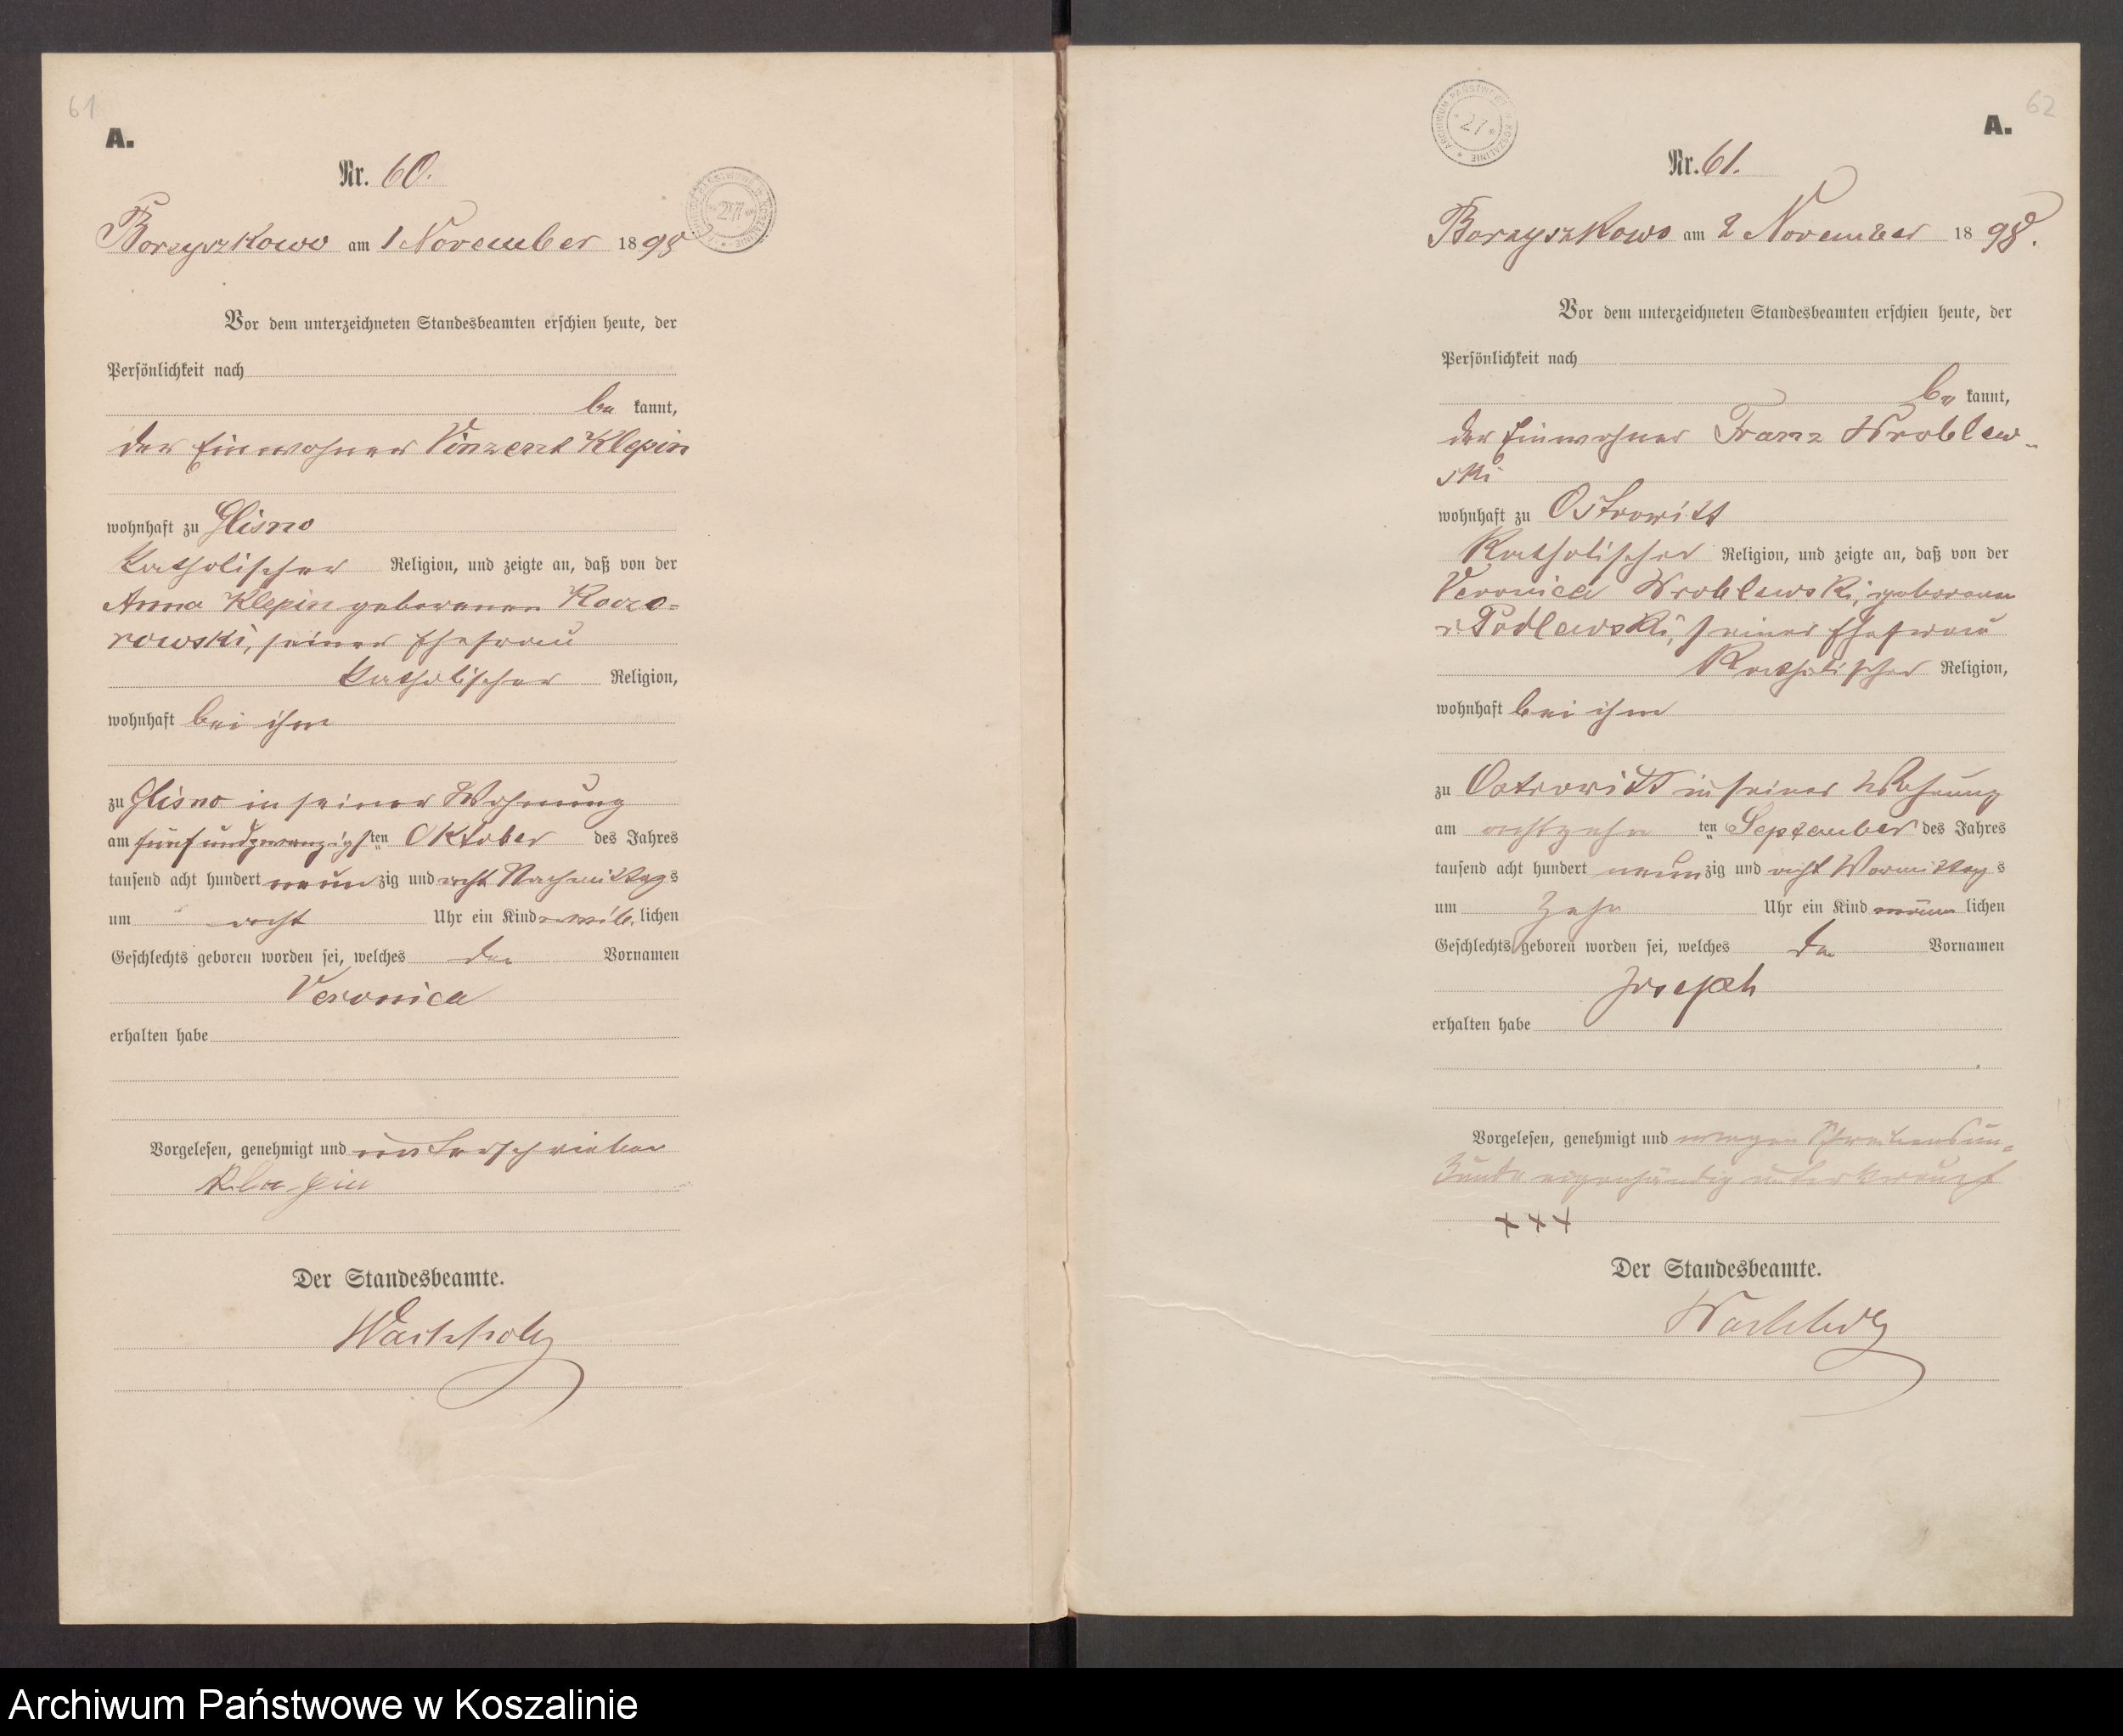 61
A.
Nr. 60.
Borzyszkowo am 1 November 1898
Vor dem unterzeichneten Standesbeamten erschien heute, der
Persönlichkeit nach
be kannt,
der Einwohner Vinzent Klepin
wohnhaft zu Glisno
katholischer Religion, und zeigte an, daß von der
Anna Klepin geborenen
seiner Ehefrau
katholischer Religion,
wohnhaft bei ihm
zu Glisno in seiner Wohnung
am fünfundzwanzigsten Oktober des Jahres
tausend acht hundert neunzig und acht Nachmittags
um acht Uhr ein Kind weiblichen
Geschlechts geboren worden sei, welches den Vornamen
Veronica
erhalten habe
Vorgelesen, genehmigt und unterschrieben
Klepin
Der Standesbeamte.
Wachholz
62
A.
ARCHIWUM PAŃSTWOWE W KOSZALINIE
27
Nr. 61.
Borzyszkowo am 2 November 1898.
Vor dem unterzeichneten Standesbeamten erschien heute, der
Persönlichkeit nach
be kannt,
der Einwohner Franz Wroblew-
ski
wohnhaft zu Ostrowitt
Katholischer Religion, und zeigte an, daß von der
Veronica Wroblewski, geborenen
Podlewski, seiner Ehefrau
Katholischer Religion,
wohnhaft bei ihm
zu Ostrowitt in seiner Wohnung
am achtzehnten September des Jahres
tausend acht hundert neunzig und acht Vormittags
um zehn Uhr ein Kind männlichen
Geschlechts geboren worden sei, welches den Vornamen
Joseph
erhalten habe
Vorgelesen, genehmigt und wegen Schreibensun-
kunde eigenhändig unterkreuzt
+++
Der Standesbeamte.
Wachholz
Archiwum Państwowe w Koszalinie